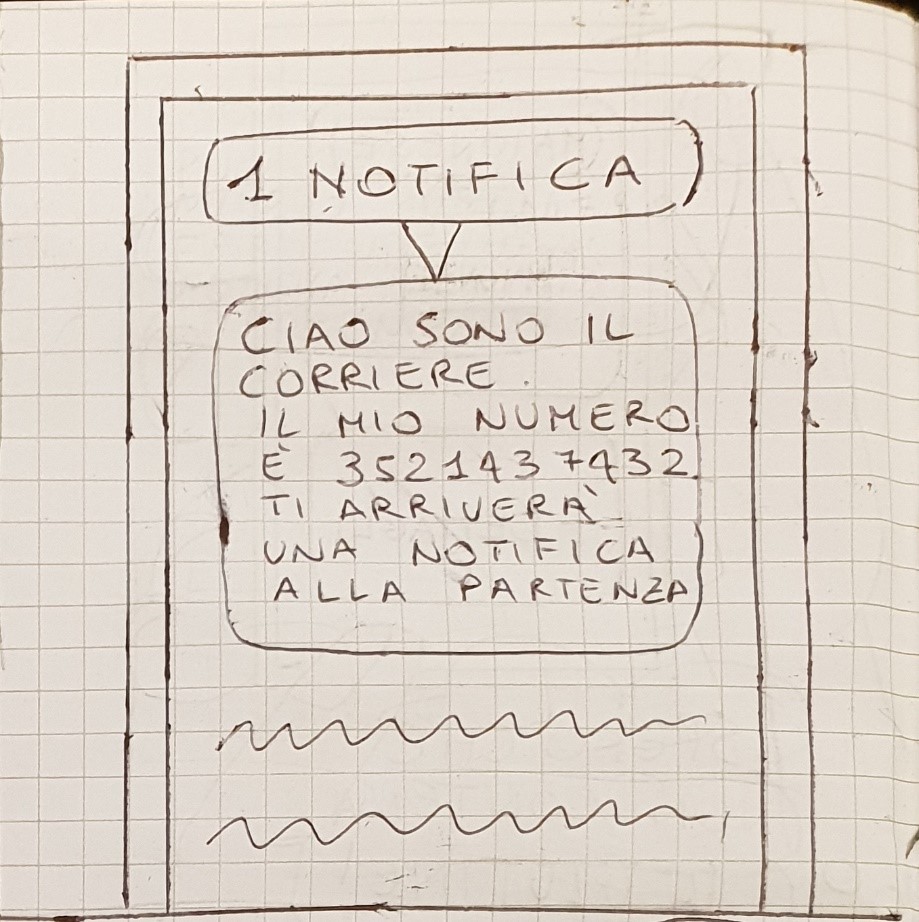 1 NOTIFICA
CIAO SONO IL
CORRIERE.
IL MIO NUMERO
È 3521437432.
TI ARRIVERÀ
UNA NOTIFICA
ALLA PARTENZA